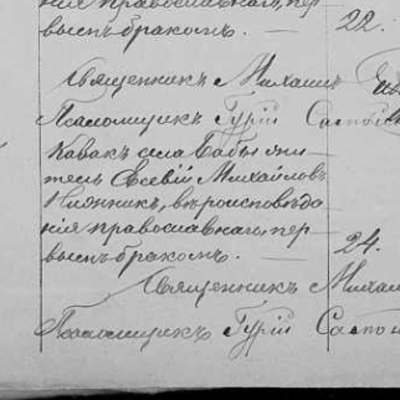 нія православнаго, пер
вымъ бракомъ. — 22.
Священникъ Михаилъ
Псаломщикъ Гурій
Кавакъ села Бабы жи
тель Евсевій Михайловъ
вѣроисповѣда
нія православнаго, пер
вымъ бракомъ. — 24.
Священникъ Михаи
Псаломщикъ Гурій